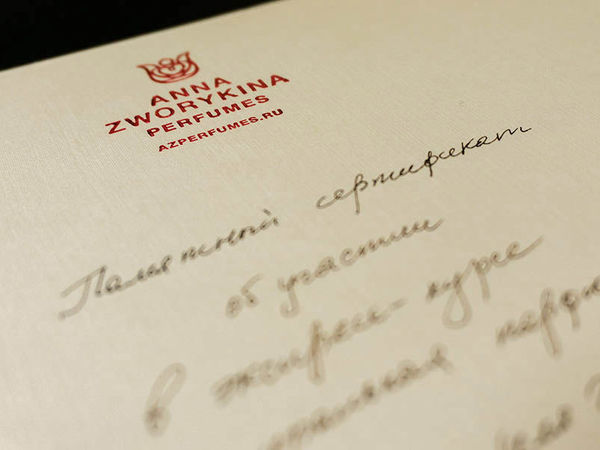 ANNA
ZWORYKINA
PERFUMES
AZPERFUMES.RU
Памятный сертификат
об участии
в экспресс-курсе